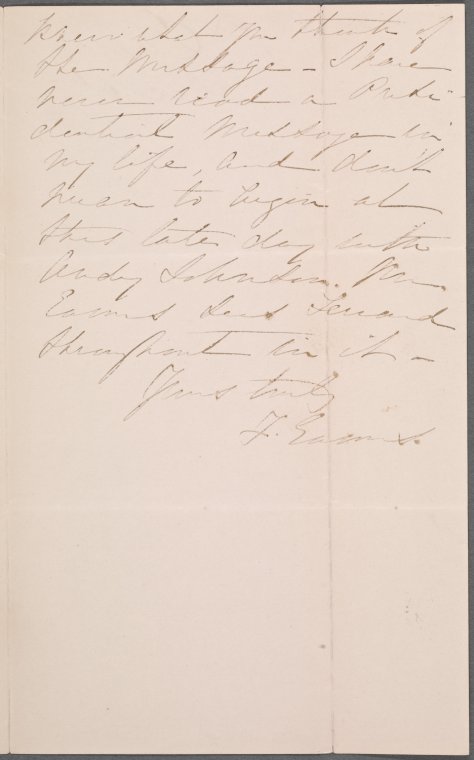 know what you think of
the Message – I have
never read a Presi-
dential Message in
my life, and don't
mean to begin at
this late day with
Andy Johnson.
throughout in it –
Yours truly